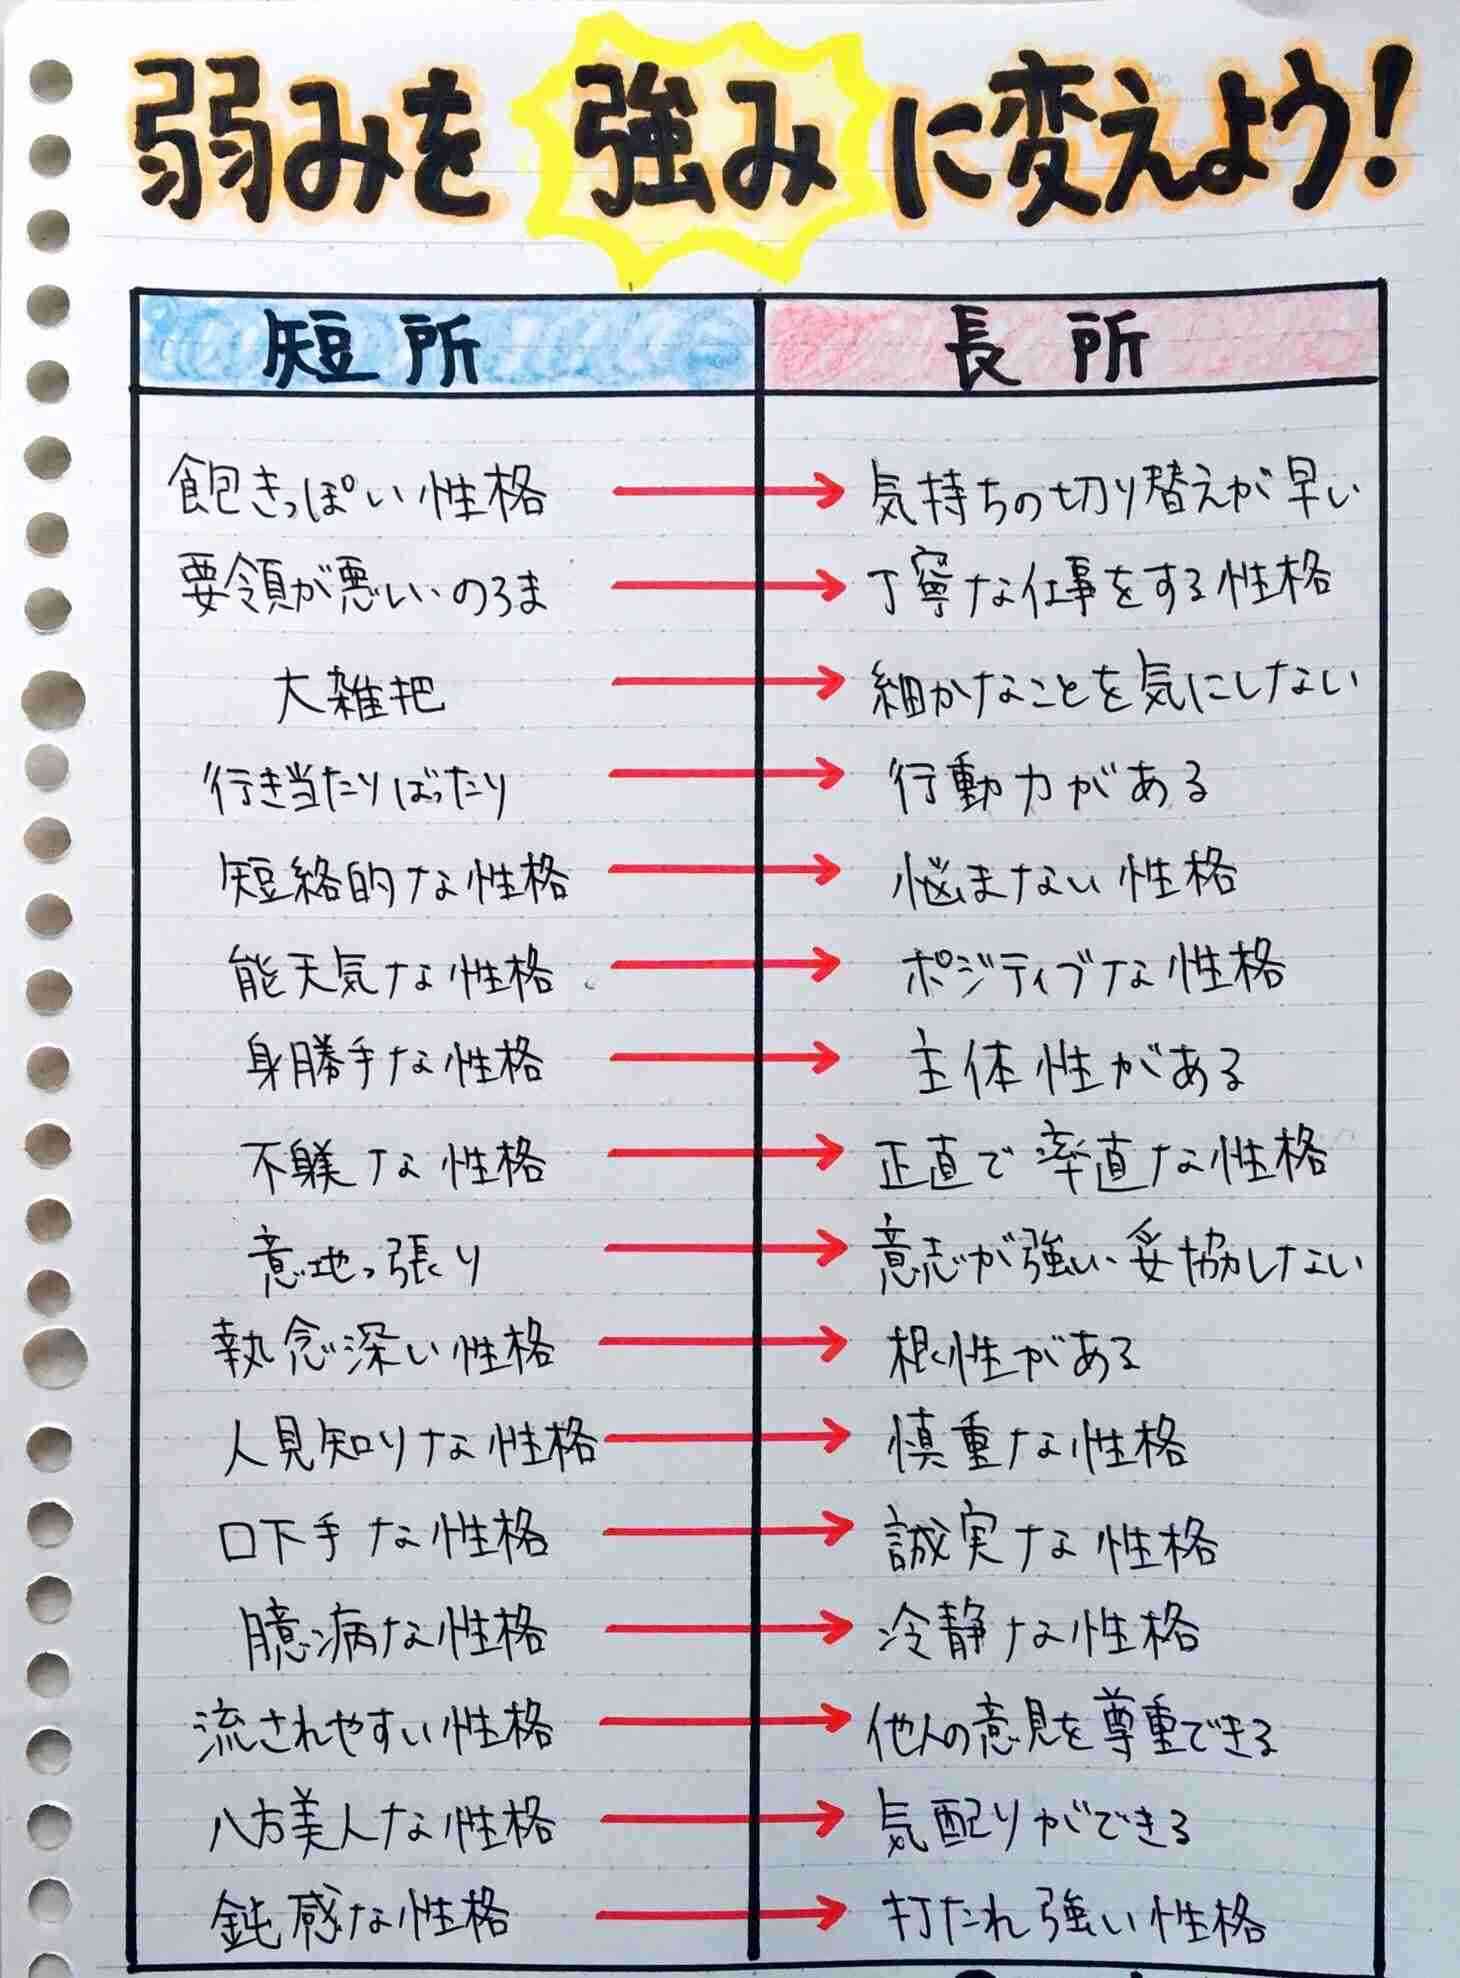 弱みを強みに変えよう!
短所 長所
飽きっぽい性格 → 気持ちの切り替えが早い
要領が悪い、のろま → 丁寧な仕事をする性格
大雑把 → 細かなことを気にしない
行き当たりばったり → 行動力がある
短絡的な性格 → 悩まない性格
能天気な性格 → ポジティブな性格
身勝手な性格 → 主体性がある
不躾な性格 → 正直で率直な性格
意地っ張り → 意志が強い、妥協しない
執念深い性格 → 根性がある
人見知りな性格 → 慎重な性格
口下手な性格 → 誠実な性格
臆病な性格 → 冷静な性格
流されやすい性格 → 他人の意見を尊重できる
八方美人な性格 → 気配りができる
鈍感な性格 → 打たれ強い性格